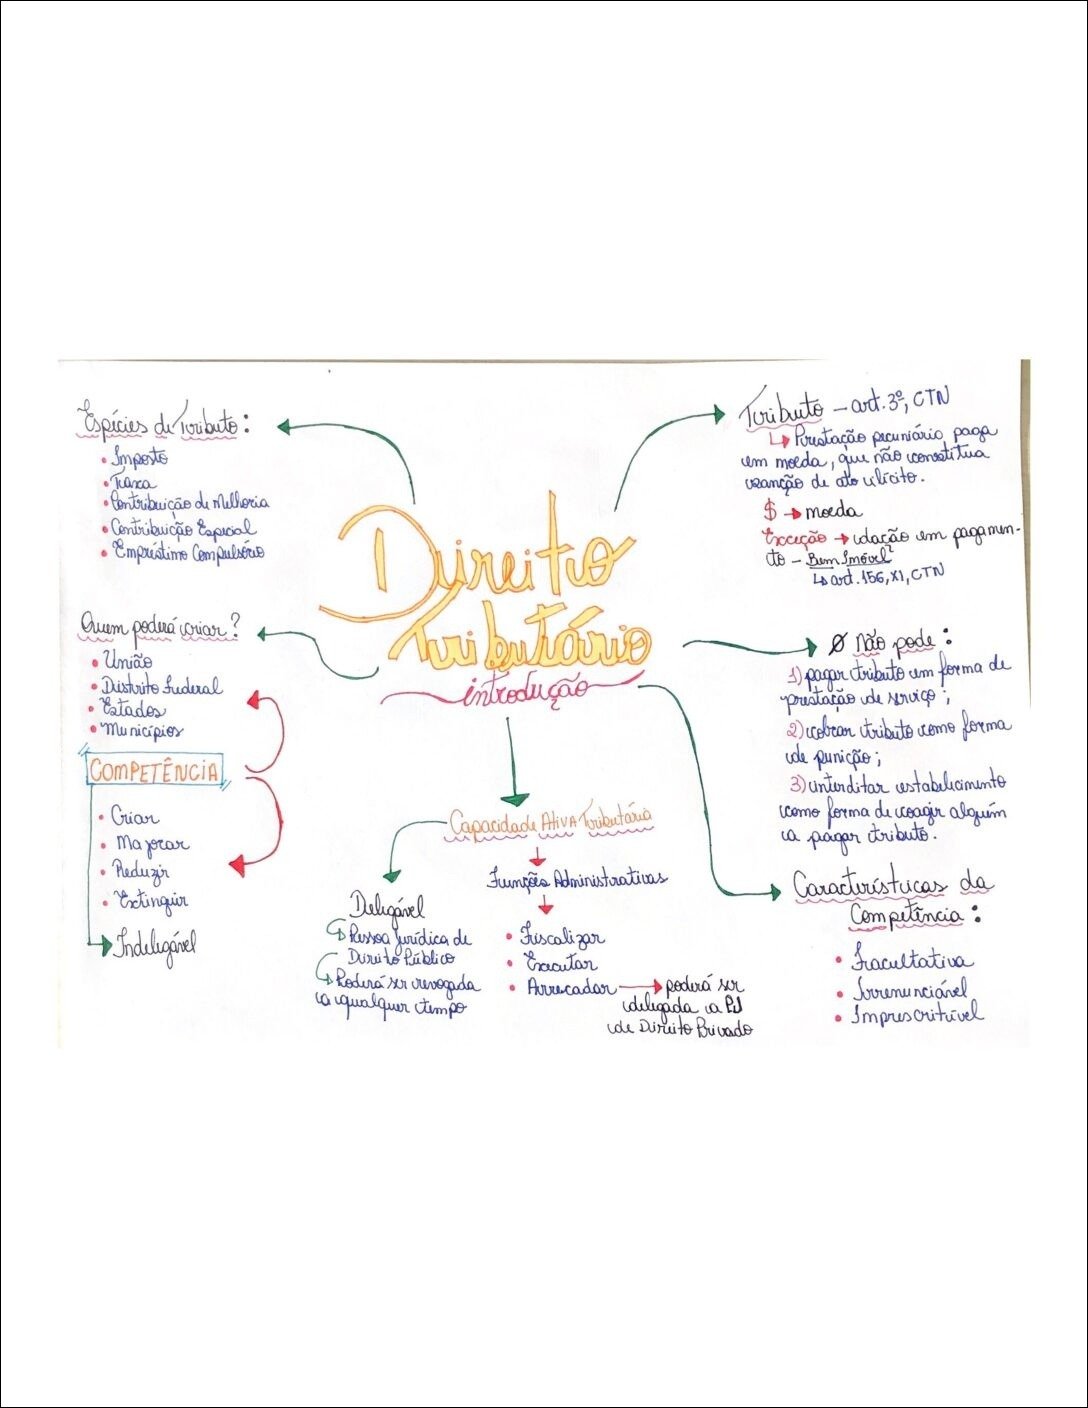 Direito
Tributário
introdução
Espécies de Tributo:
• Imposto
• Taxa
• Contribuição de Melhoria
• Contribuição Especial
• Empréstimo Compulsório
Quem poderá criar?
• União
• Distrito Federal
• Estados
• Municípios
COMPETÊNCIA
• Criar
• Majorar
• Reduzir
• Extinguir
Indelegável
Capacidade Ativa Tributária
Delegável
Pessoa Jurídica de
Direito Público
Poderá ser revogada
a qualquer tempo
Funções Administrativas
• Fiscalizar
• Executar
• Arrecadar → poderá ser
delegada a PJ
de Direito Privado
Tributo – art. 3º, CTN
↳ Prestação pecuniário paga
em moeda, que não constitua
sanção de ato ilícito.
$ → moeda
Exceção → dação em pagamen-
to – Bem Imóvel
↳ art. 156, XI, CTN
Ø Não pode:
1) pagar tributo em forma de
prestação de serviço;
2) cobrar tributo como forma
de punição;
3) interditar estabelecimento
como forma de coagir alguém
a pagar tributo.
Características da
Competência:
• Facultativa
• Irrenunciável
• Imprescritível